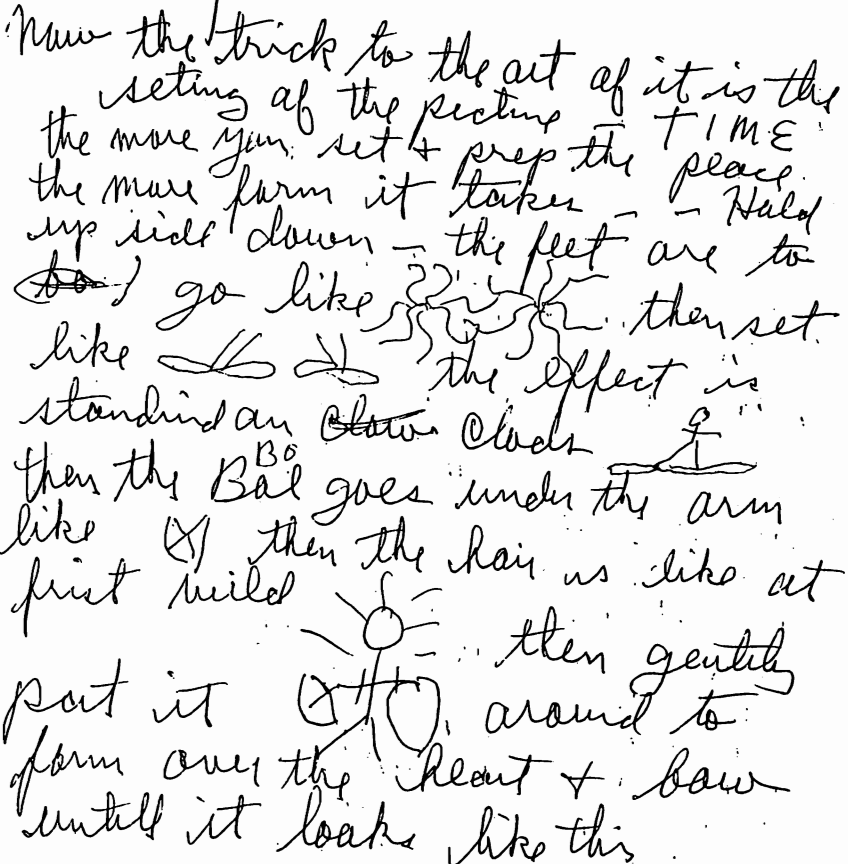 Now the trick to the art of it is the
seting of the picture - TIME
the more you set & prep the place
the more form it takes - - Hold
up side down - the feet are to
go like then set
like the effect is
standind on Clouds
then the Bal Bo goes under the arm
like then the hair is like at
first wild
then gentily
part it around to
form over the heart & bow
untill it looks like this